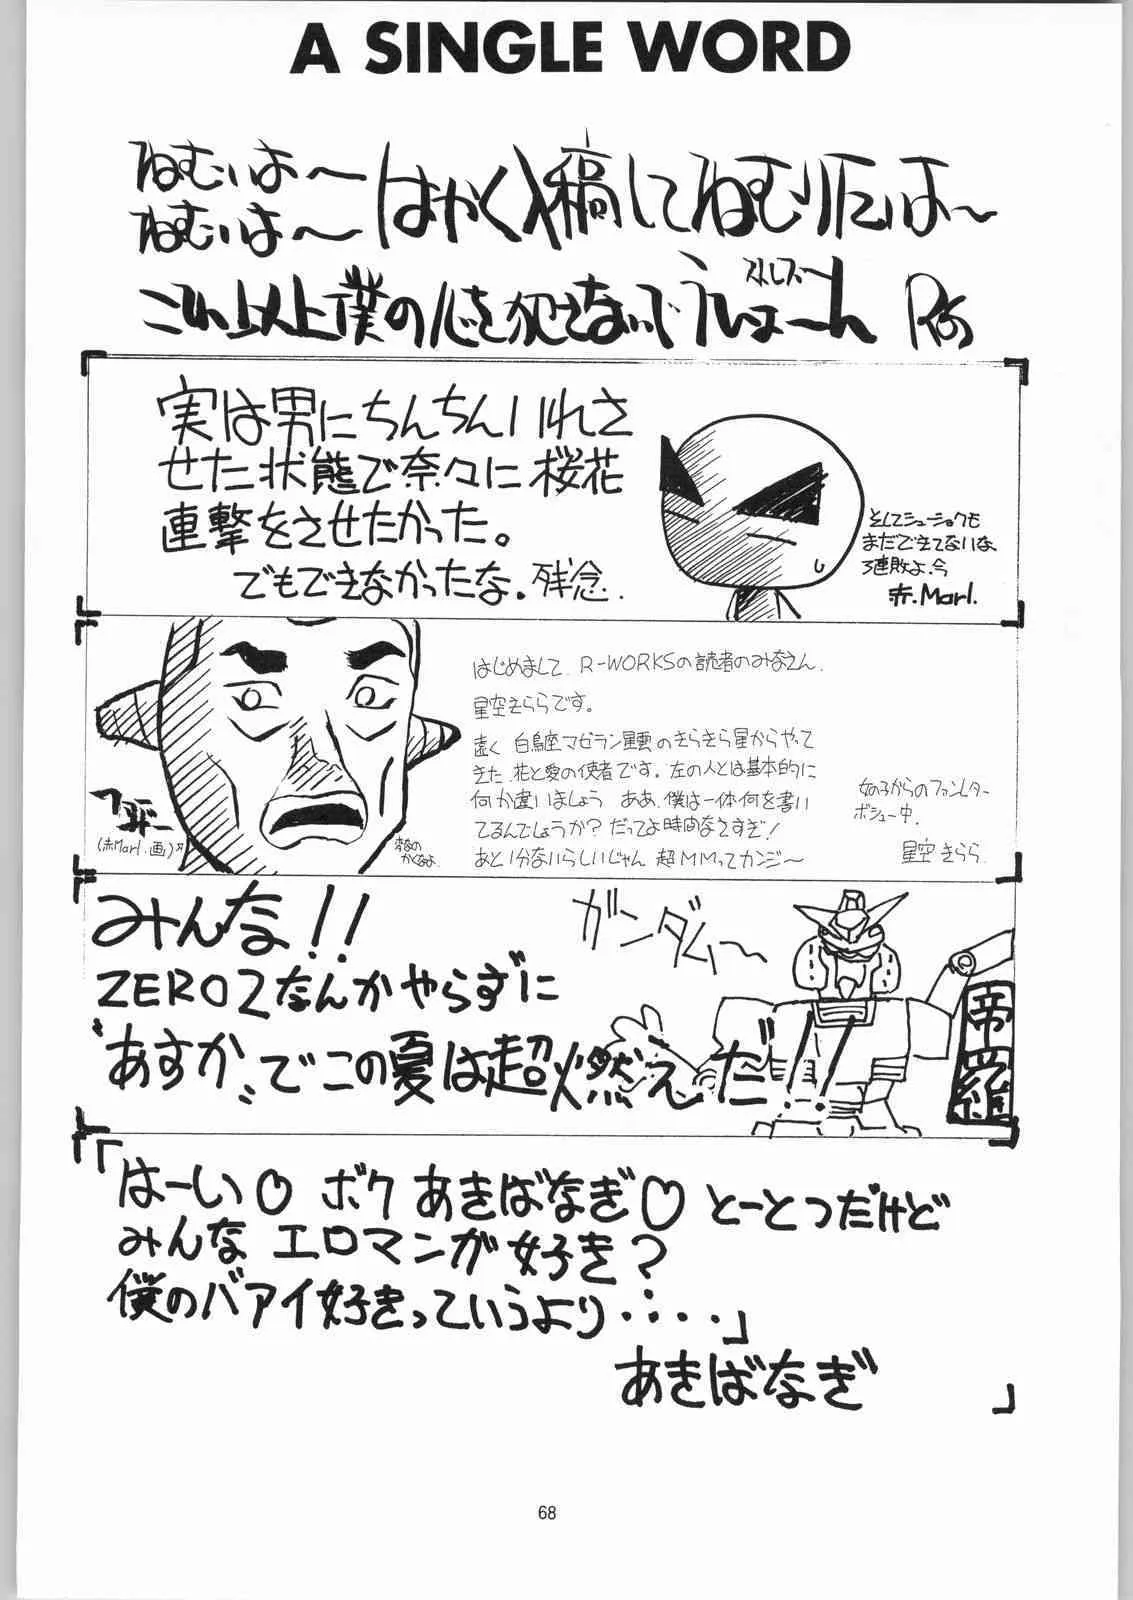 A SINGLE WORD
ねむいよ〜はやく入稿してねむりたいよ〜
ねむいよ〜
これ以上僕の心を犯さないでうしょーん
実は男にちんちんいれさ
せた状態で奈々に桜花
連撃をさせたかった。
でもできなかったな。残念.
そしてシューショクも
まだできてないな
3連敗よ.今
赤.Marl.
はじめまして R-WORKSの読者のみなさん.
星空きららです。
遠く 白鳥座マゼラン星雲のきらきら星からやって
きた 花と愛の使者です。左の人とは基本的に
何か違いましょう ああ、僕は一体何を書い
てるんでしょうか?だってよ時間なさすぎ!
あと1分ないらしいじゃん 超MMってカンジ〜
女の子からのファンレター
ボシュー中.
星空 きらら.
(赤Marl.画)
みんな!!
ZERO2なんかやらずに
"あすか"でこの夏は超燃えだ!!
ガンダム〜
帝羅
「はーい♡ ボク あきばなぎ♡ とーとつだけど
みんな エロマンガ好き?
僕のバアイ好きっていうより・・・・」
あきばなぎ
68